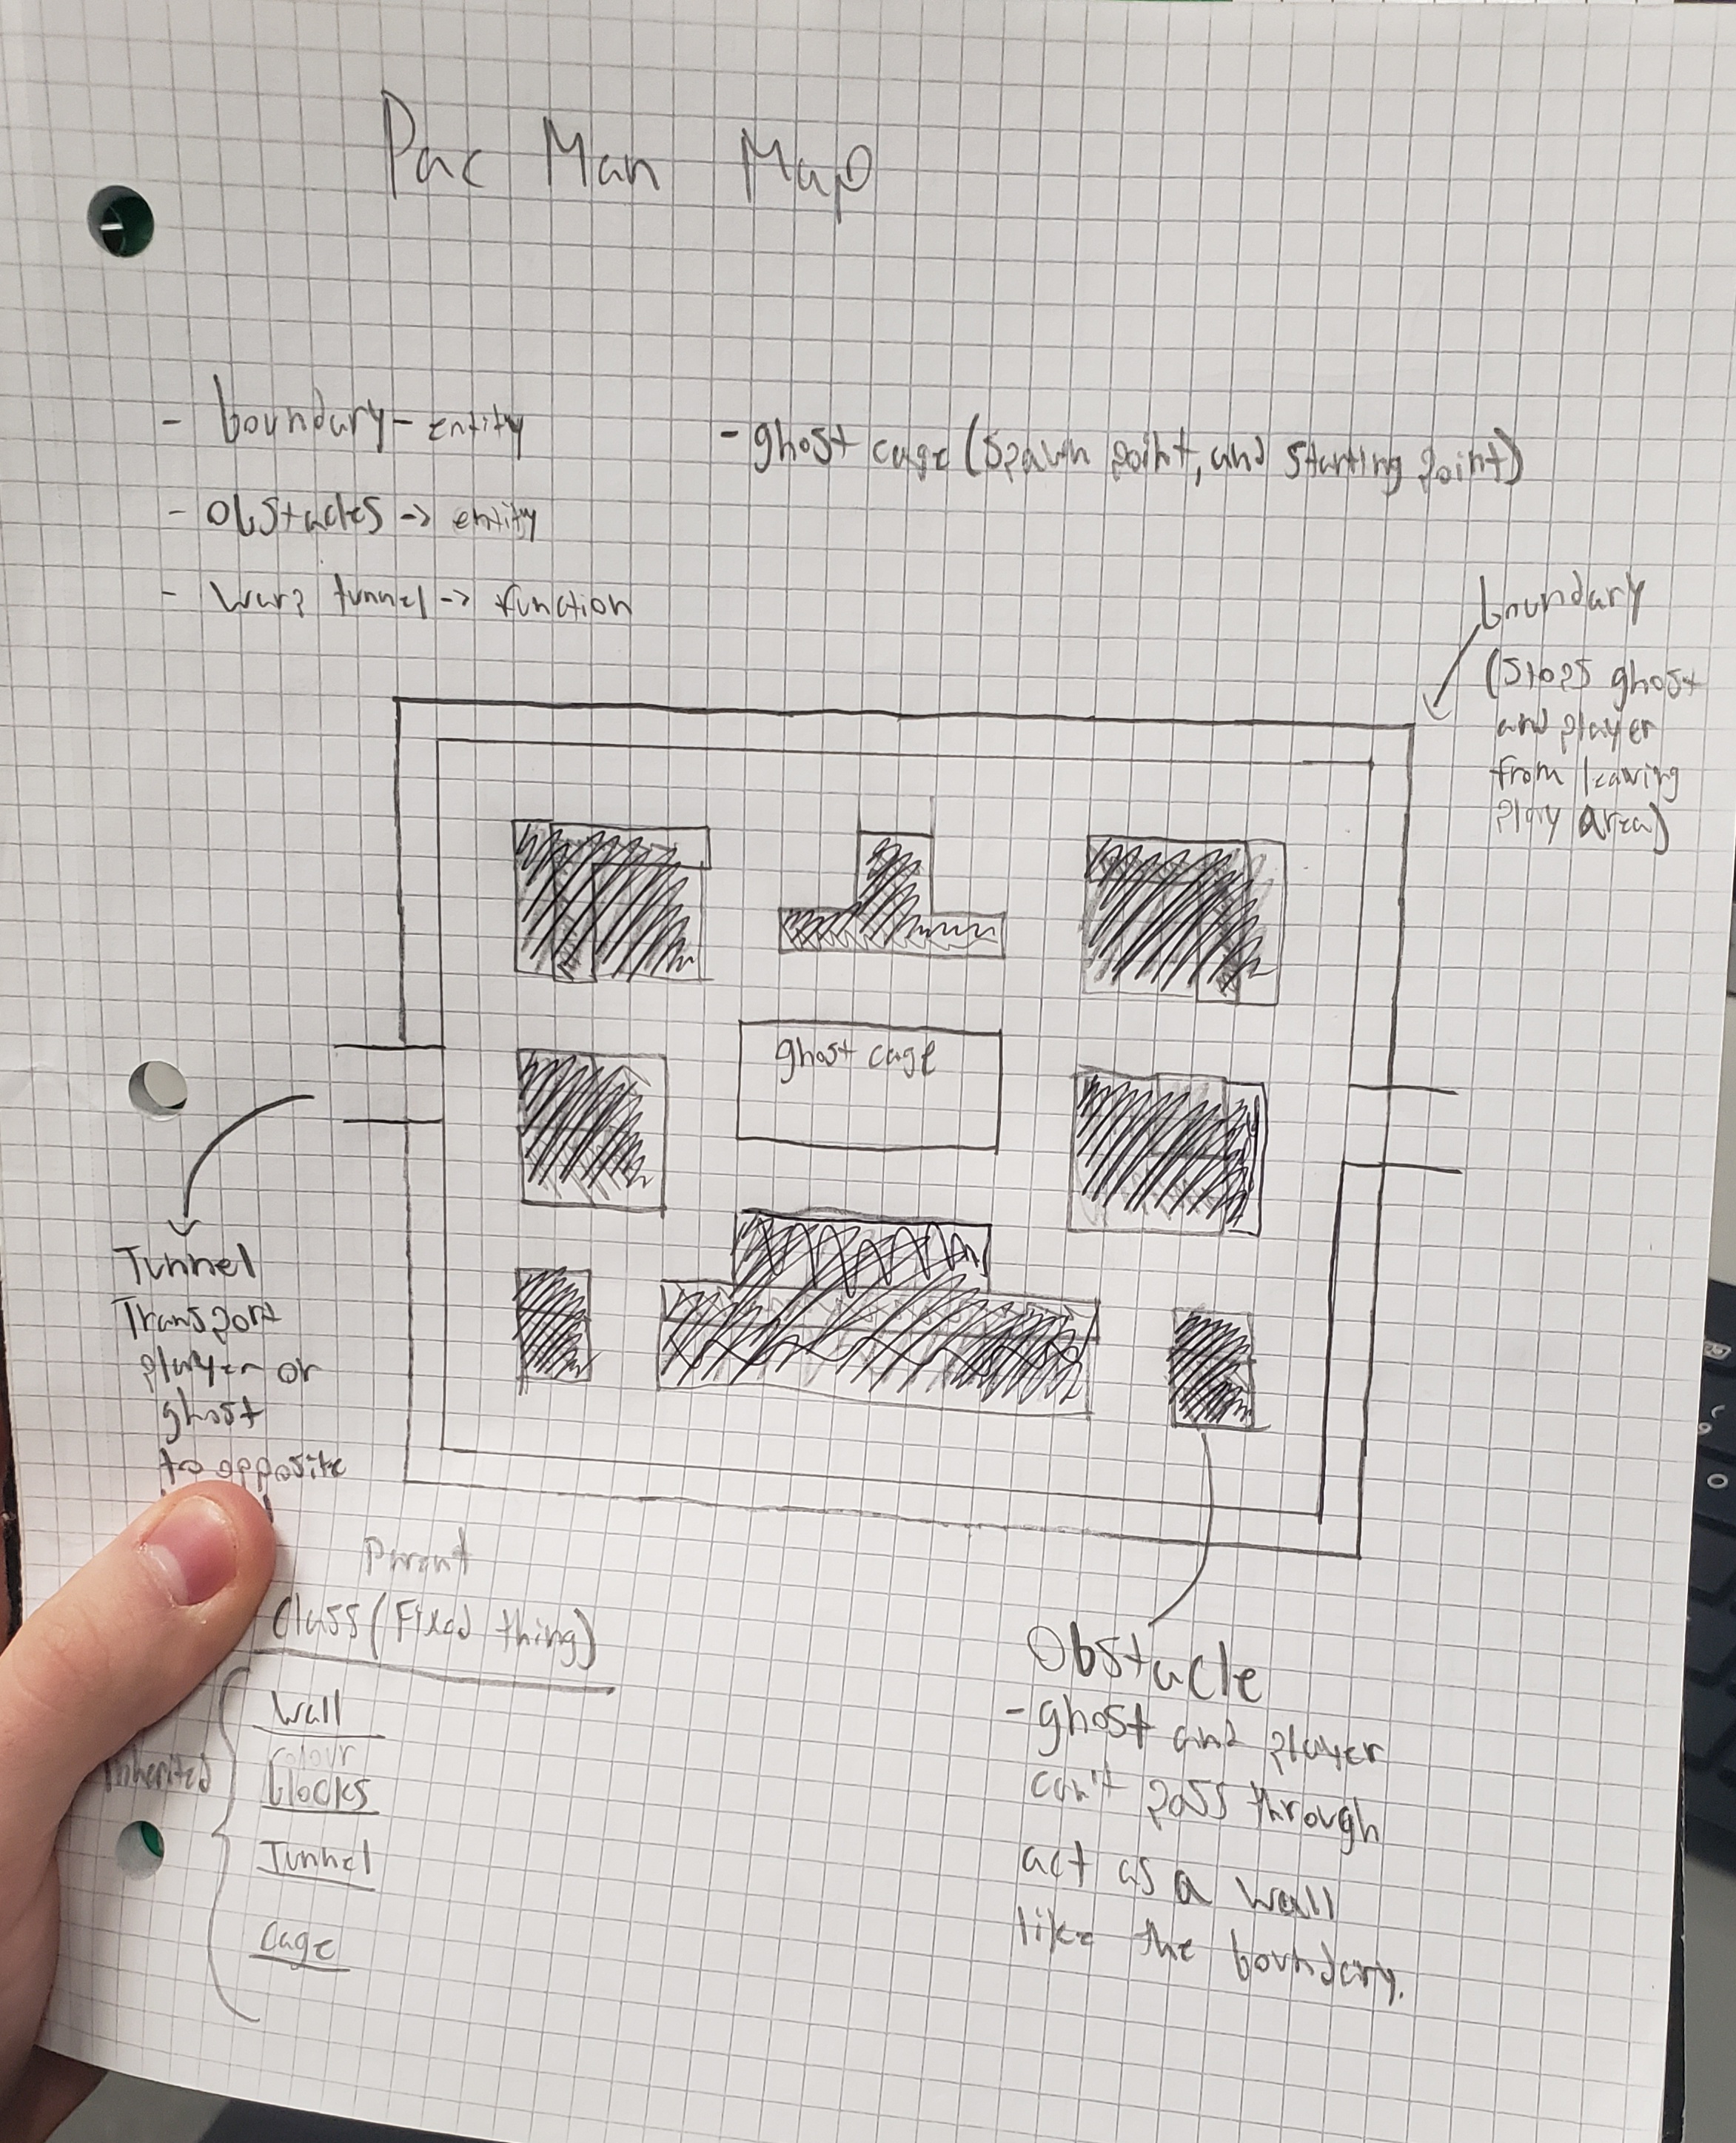 Pac Man Map
- boundary - entity
- ghost cage (spawn point, and starting point)
- obstacles -> entity
- warp tunnel -> function
boundary
(stops ghost
and player
from leaving
play area)
ghost cage
Tunnel
Transport
player or
ghost
to opposite
Parent
Class (Fixed thing)
inherited
Wall
Colour
blocks
Tunnel
cage
Obstacle
- ghost and player
can't pass through
act as a wall
like the boundary.